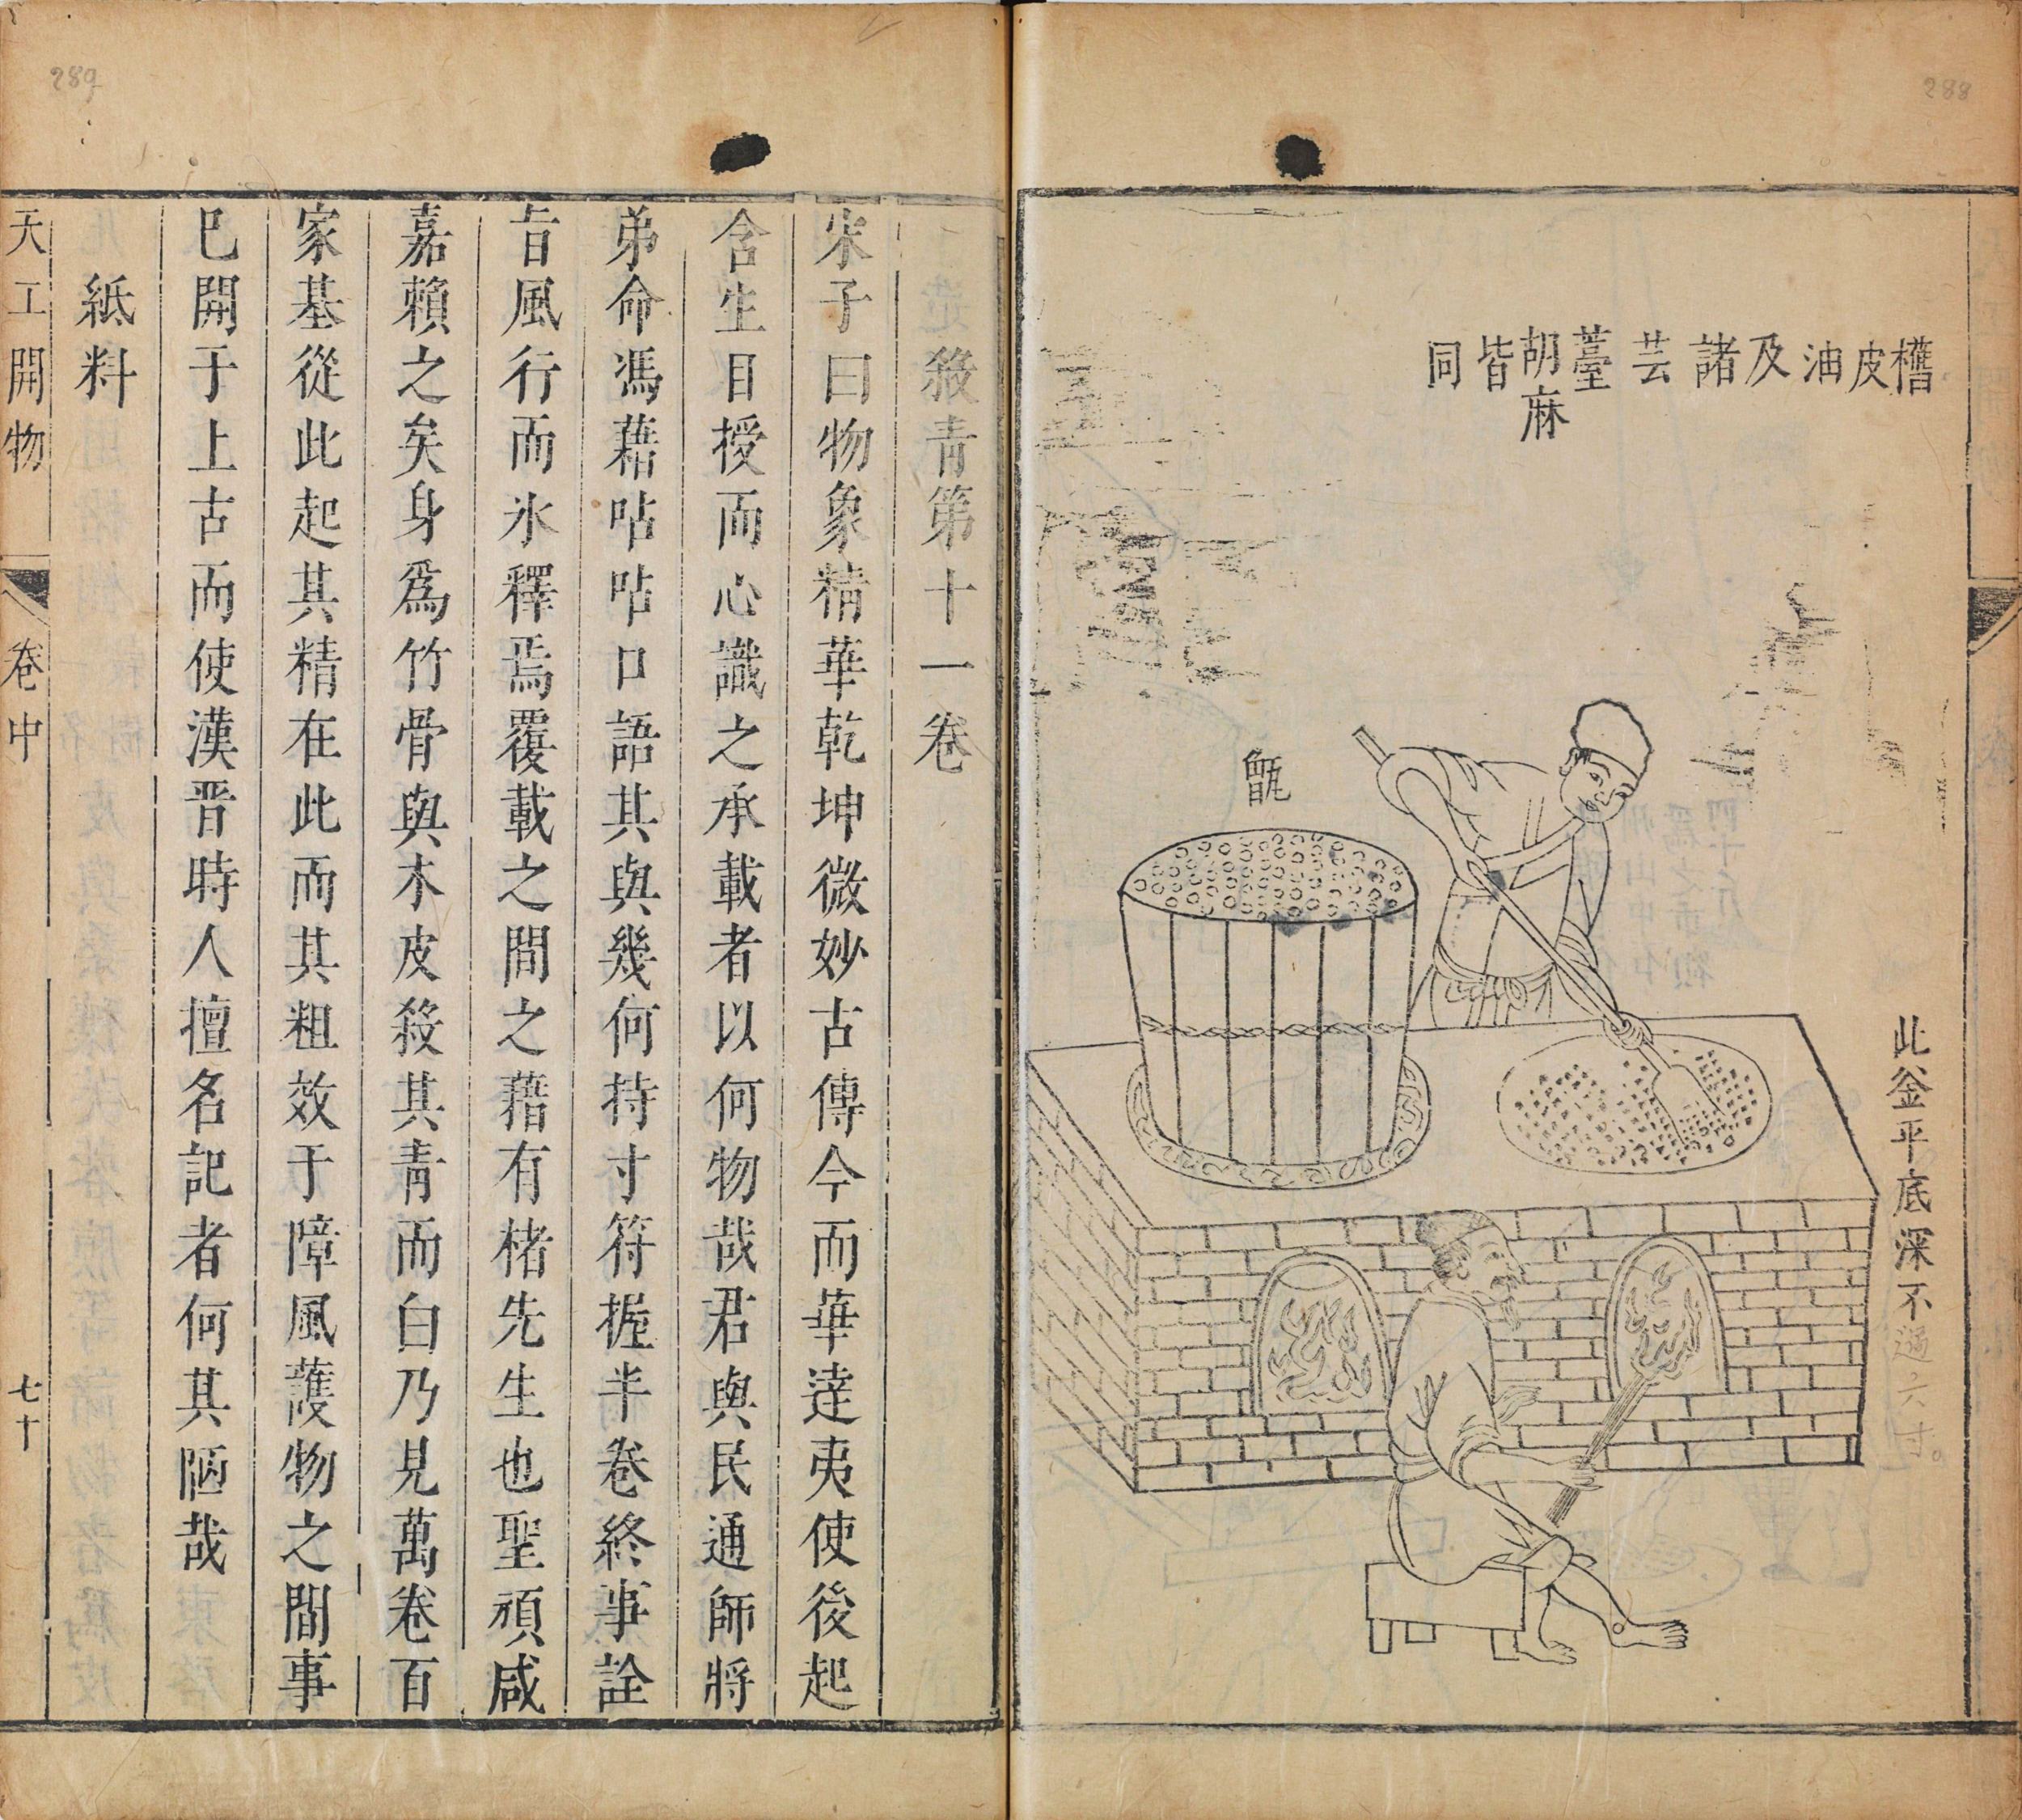 288
皮油及諸芸薹胡麻皆同
甑
此釜平底深不過六寸。
289
殺青第十一卷
宋子曰物象精華乾坤微妙古傳今而華達夷使後起
含生目授而心識之承載者以何物哉君與民通師將
弟命馮藉呫呫口語其與幾何持寸符握半卷終事詮
旨風行而氷釋焉覆載之間之藉有楮先生也聖頑咸
嘉賴之矣身爲竹骨與木皮殺其青而白乃見萬卷百
家基從此起其精在此而其粗效于障風護物之間事
已開于上古而使漢晋時人擅名記者何其陋哉
紙料
天工開物 卷中 七十